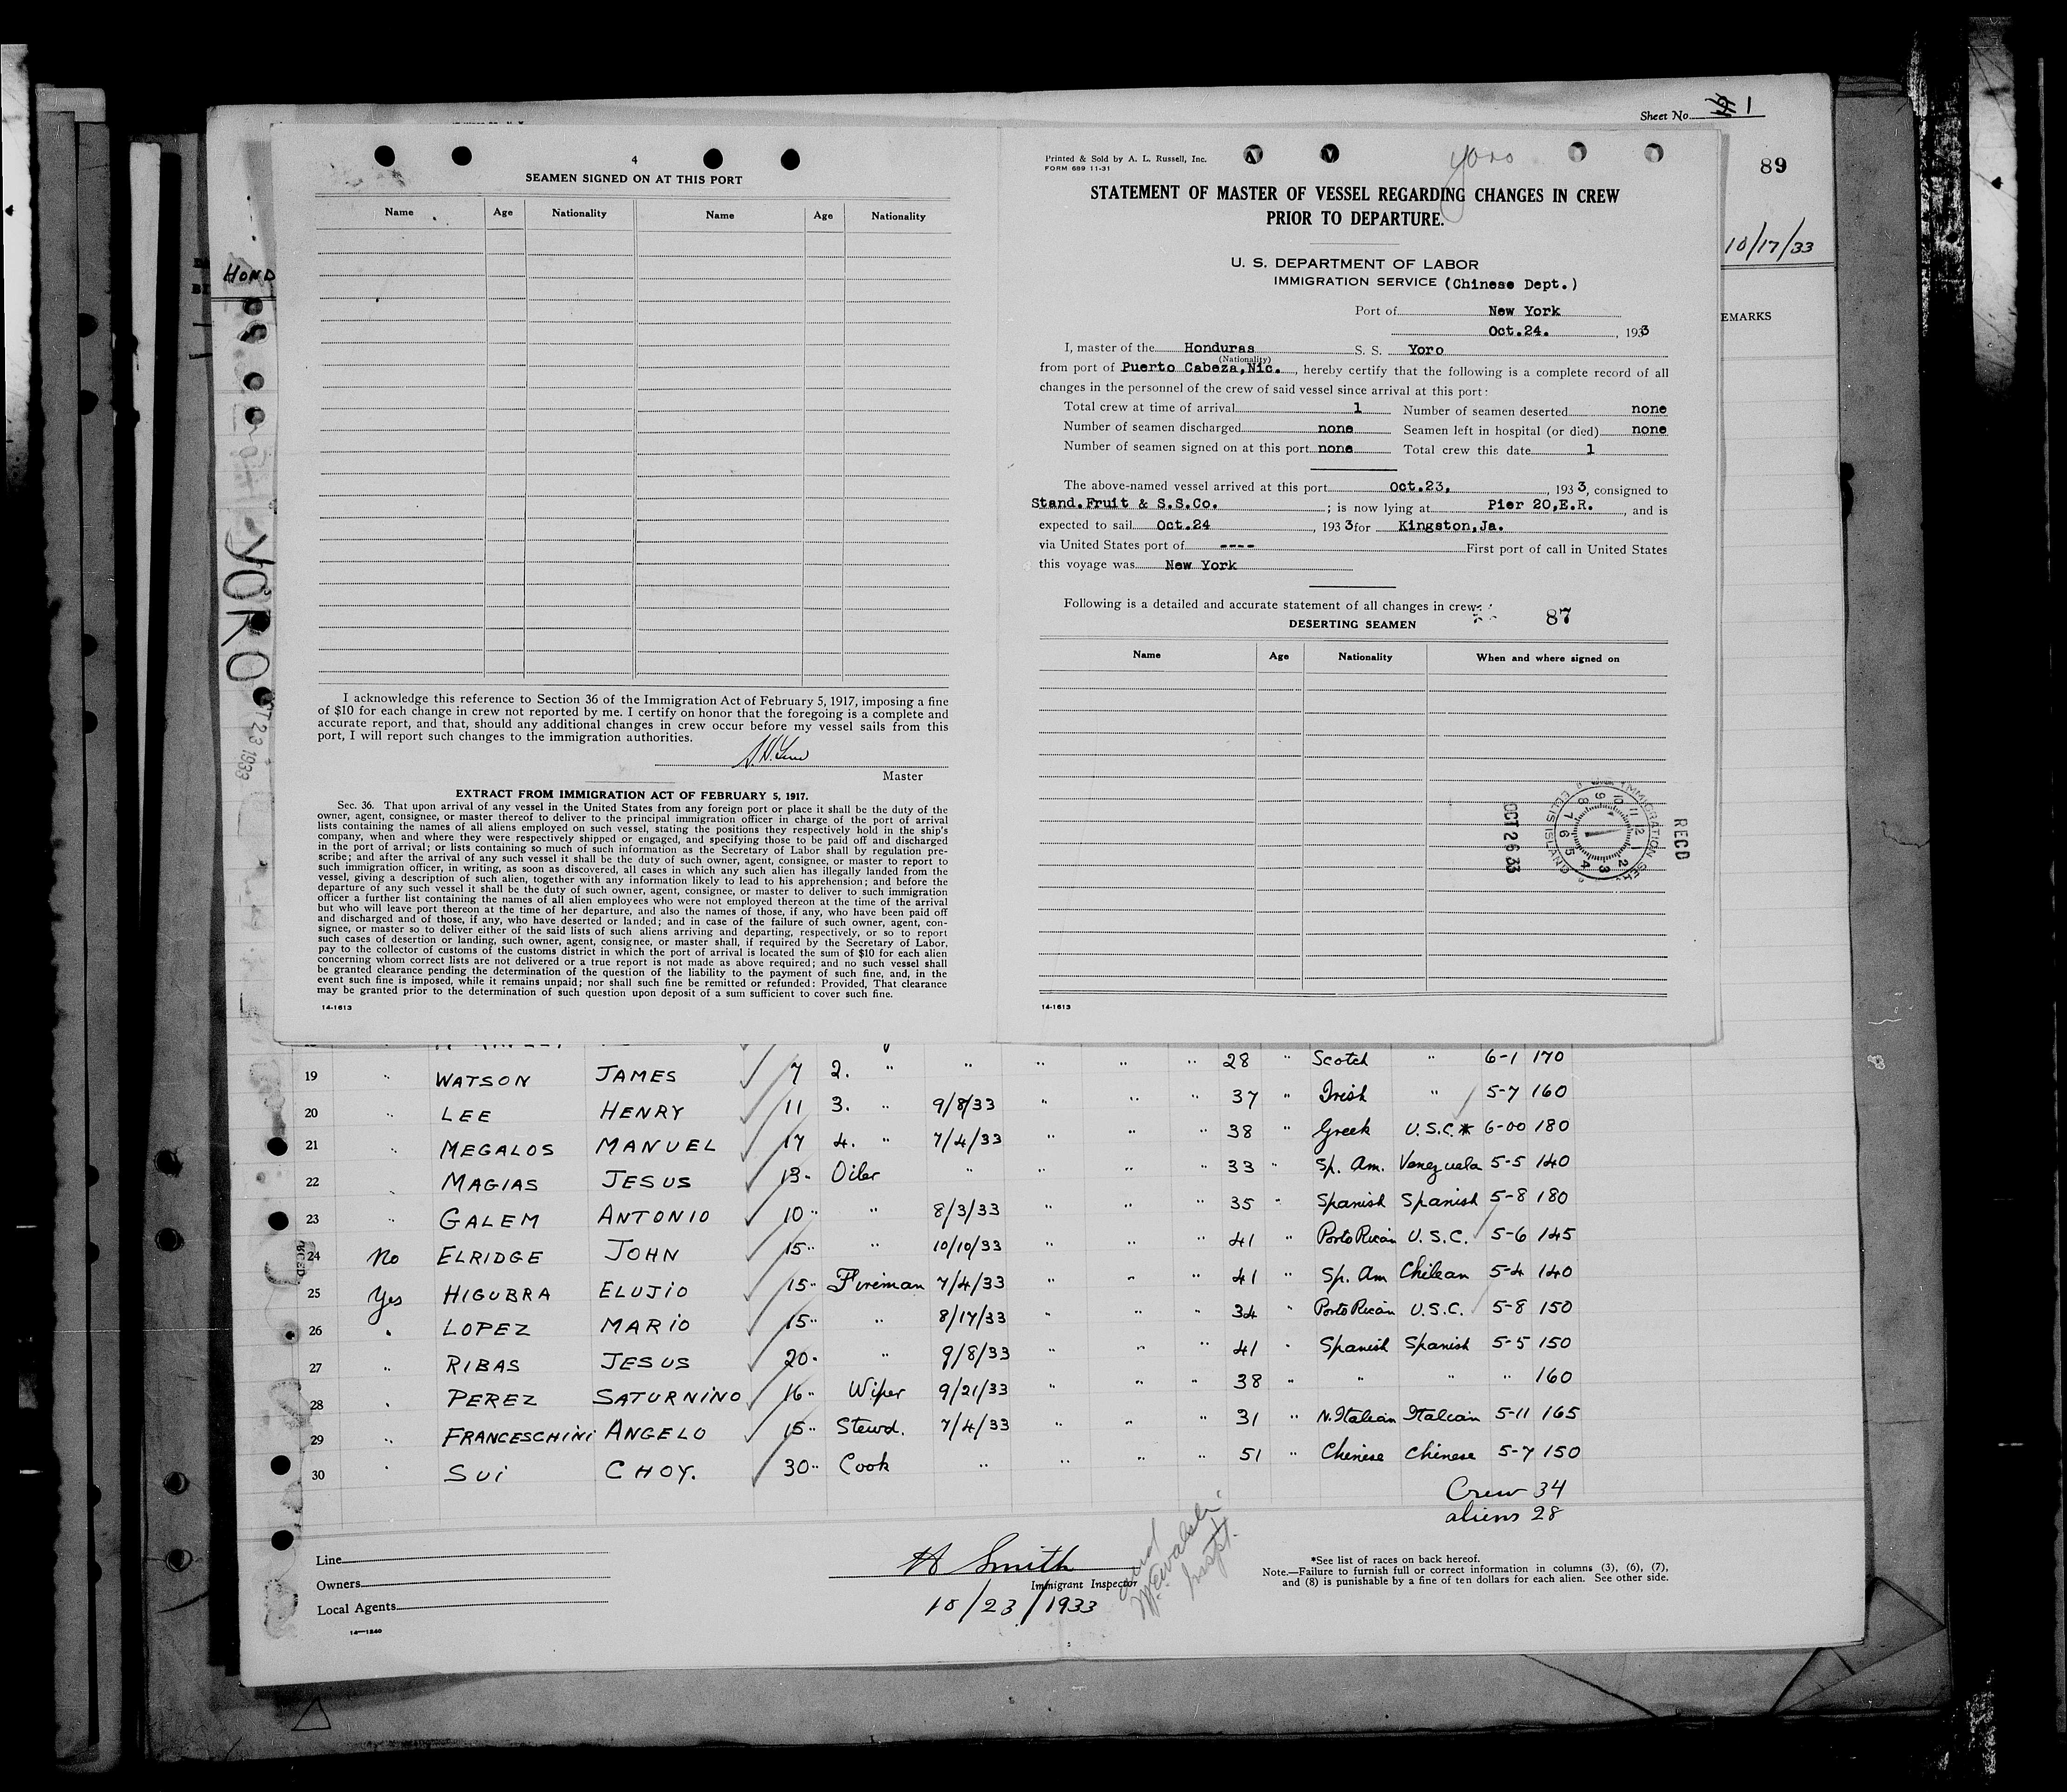 Sheet No. 1
89
10/17/33
HOND
EMARKS
YORO
T 23 1933
4
SEAMEN SIGNED ON AT THIS PORT
Name Age Nationality Name Age Nationality
I acknowledge this reference to Section 36 of the Immigration Act of February 5, 1917, imposing a fine
of $10 for each change in crew not reported by me. I certify on honor that the foregoing is a complete and
accurate report, and that, should any additional changes in crew occur before my vessel sails from this
port, I will report such changes to the immigration authorities.
Master
EXTRACT FROM IMMIGRATION ACT OF FEBRUARY 5, 1917.
Sec. 36. That upon arrival of any vessel in the United States from any foreign port or place it shall be the duty of the
owner, agent, consignee, or master thereof to deliver to the principal immigration officer in charge of the port of arrival
lists containing the names of all aliens employed on such vessel, stating the positions they respectively hold in the ship's
company, when and where they were respectively shipped or engaged, and specifying those to be paid off and discharged
in the port of arrival; or lists containing so much of such information as the Secretary of Labor shall by regulation pre-
scribe; and after the arrival of any such vessel it shall be the duty of such owner, agent, consignee, or master to report to
such immigration officer, in writing, as soon as discovered, all cases in which any such alien has illegally landed from the
vessel, giving a description of such alien, together with any information likely to lead to his apprehension; and before the
departure of any such vessel it shall be the duty of such owner, agent, consignee, or master to deliver to such immigration
officer a further list containing the names of all alien employees who were not employed thereon at the time of the arrival
but who will leave port thereon at the time of her departure, and also the names of those, if any, who have been paid off
and discharged and of those, if any, who have deserted or landed; and in case of the failure of such owner, agent, con-
signee, or master so to deliver either of the said lists of such aliens arriving and departing, respectively, or so to report
such cases of desertion or landing, such owner, agent, consignee, or master shall, if required by the Secretary of Labor,
pay to the collector of customs of the customs district in which the port of arrival is located the sum of $10 for each alien
concerning whom correct lists are not delivered or a true report is not made as above required; and no such vessel shall
be granted clearance pending the determination of the question of the liability to the payment of such fine, and, in the
event such fine is imposed, while it remains unpaid; nor shall such fine be remitted or refunded: Provided, That clearance
may be granted prior to the determination of such question upon deposit of a sum sufficient to cover such fine.
14-1613
Printed & Sold by A. L. Russell, Inc.
FORM 689 11-31
Yoro
STATEMENT OF MASTER OF VESSEL REGARDING CHANGES IN CREW
PRIOR TO DEPARTURE.
U. S. DEPARTMENT OF LABOR
IMMIGRATION SERVICE (Chinese Dept.)
Port of New York
Oct.24. , 1933
I, master of the Honduras S. S. Yoro
(Nationality)
from port of Puerto Cabeza,Nic. , hereby certify that the following is a complete record of all
changes in the personnel of the crew of said vessel since arrival at this port:
Total crew at time of arrival 1 Number of seamen deserted none
Number of seamen discharged none Seamen left in hospital (or died) none
Number of seamen signed on at this port none Total crew this date 1
The above-named vessel arrived at this port Oct.23, , 1933, consigned to
Stand.Fruit & S.S.Co. ; is now lying at Pier 20,E.R. , and is
expected to sail Oct.24 , 1933 for Kingston,Ja.
via United States port of ---- First port of call in United States
this voyage was New York
Following is a detailed and accurate statement of all changes in crew:
87
DESERTING SEAMEN
Name Age Nationality When and where signed on
RECD
OCT 26 33
14-1613
" 28 " Scotch " 6-1 170
19 " WATSON JAMES 7 2. " " " " " 37 " Irish " 5-7 160
20 " LEE HENRY 11 3. " 9/8/33 " " " 38 " Greek U.S.C.* 6-00 180
21 " MEGALOS MANUEL 17 4. " 7/4/33 " " " 33 " Sp. Am. Venezuela 5-5 140
22 " MAGIAS JESUS 13 " Oiler " " " " 35 " Spanish Spanish 5-8 180
23 " GALEM ANTONIO 10 " " 8/3/33 " " " 41 " Porto Rican U.S.C. 5-6 145
24 No ELRIDGE JOHN 15 " " 10/10/33 " " " 41 " Sp. Am Chilean 5-4 140
25 Yes HIGUBRA ELUJIO 15 " Fireman 7/4/33 " " " 34 " Porto Rican U.S.C. 5-8 150
26 " LOPEZ MARIO 15 " " 8/17/33 " " " 41 " Spanish Spanish 5-5 150
27 " RIBAS JESUS 20 " " 9/8/33 " " " 38 " " " " 160
28 " PEREZ SATURNINO 16 " Wiper 9/21/33 " " " 31 " N. Italian Italian 5-11 165
29 " FRANCESCHINI ANGELO 15 " Stewd. 7/4/33 " " " 51 " Chinese Chinese 5-7 150
30 " SUI CHOY. 30 " Cook " " " "
Crew 34
aliens 28
Line
Owners
Local Agents
14-1240
H Smith
Immigrant Inspector
10/23/1933
*See list of races on back hereof.
Note.—Failure to furnish full or correct information in columns (3), (6), (7),
and (8) is punishable by a fine of ten dollars for each alien. See other side.